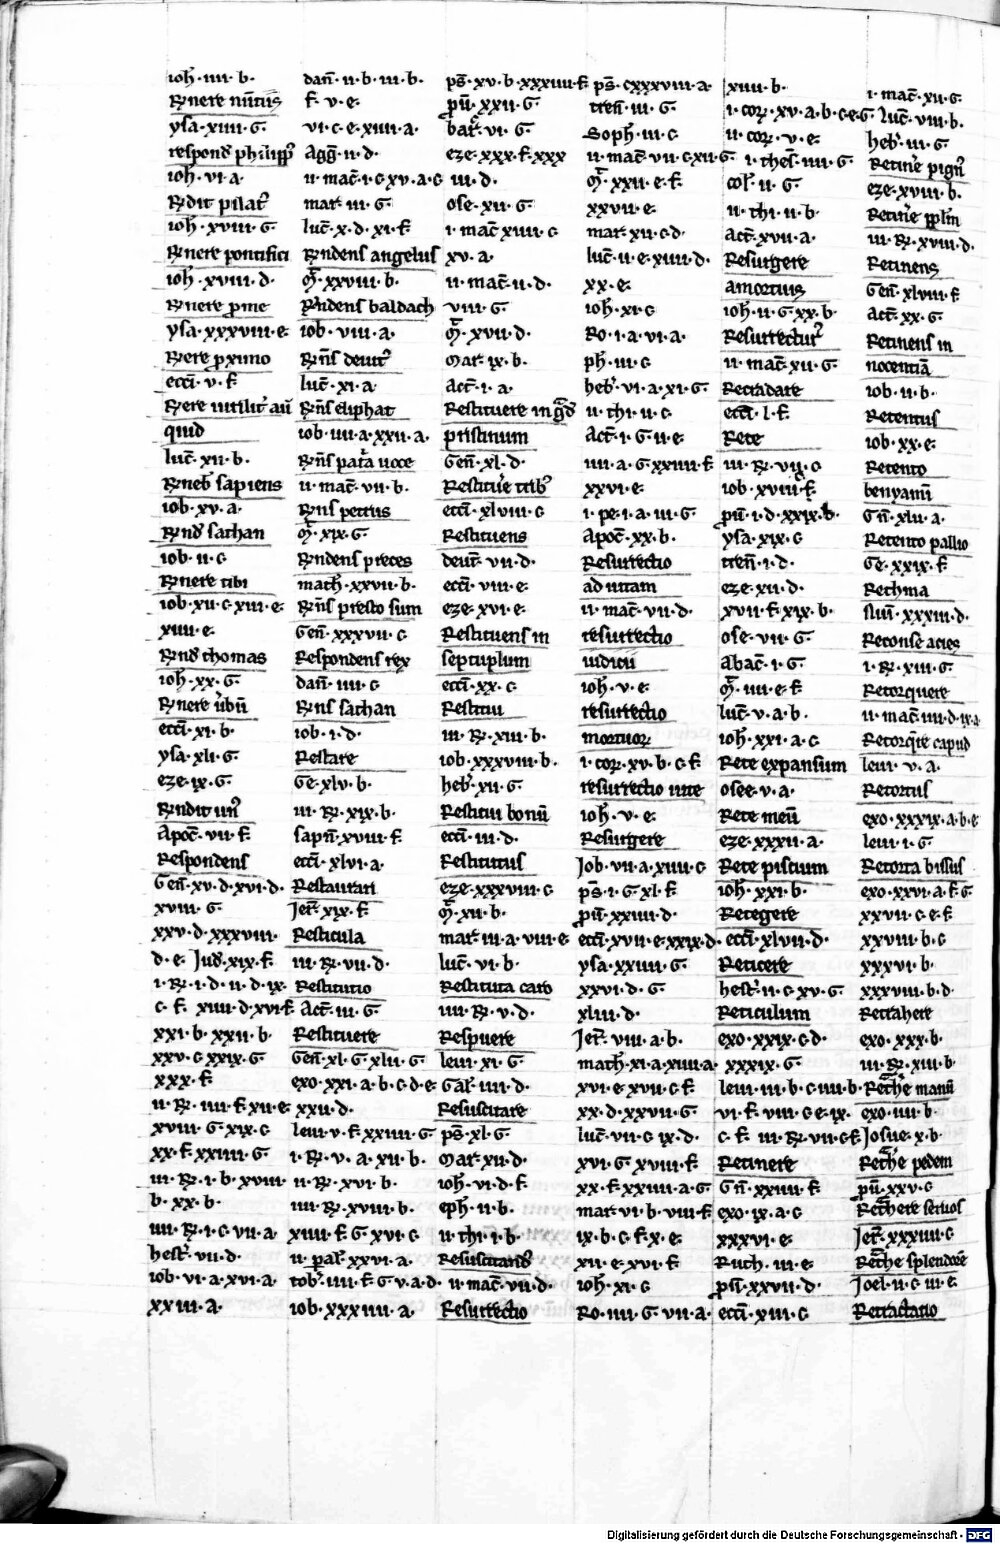 ioh̄·iiii·b·
Rn̄ere nūtiis
ysa·xiiii·G·
respond philipp̄
ioh̄·vi·a·
Rn̄dit pilat᷒
ioh̄·xviii·G·
Rn̄ere pontifici
ioh̄·xviii·d·
Rn̄ere p me
ysa·xxxviii·e·
Rn̄ere proximo
ecci·v·f·
Rn̄ere iutilit̄ aū
quid
luc̄·xii·b·
Rn̄eb̄ sapiens
iob·xv·a·
Rn̄d sathan
iob·ii·c
Rn̄ere tibi
iob·xii·c xiii·e·
xiiii·e·
Rn̄d thomas
ioh̄·xx·G·
Rn̄ere v̄bū
ecci·xi·b·
ysa·xli·G·
eze·ix·G·
Rn̄dit un᷒
Apoc̄·vii·f·
Respondens
Gen̄·xv·d·xvi·d·
xviii·G·
xxv·d·xxxviii·
d·e·Jud̄·xix·f·
i·R·i·d·ii·d·ix·
c·f·xiiii·d·xvi·f·
xxi·b·xxii·b·
xxv·c·xxix·G·
xxx·f·
ii·R·iiii·f·xii·e·
xviii·G·xix·c
xx·f·xxiiii·G·
iii·R·i·b·xviii·
b·xx·b·
iiii·R·i·c·vii·a·
hest̄·vii·d·
iob·vi·a·xvi·a·
xxiii·a·
dan̄·ii·b·iii·b·
f·v·e·
vi·c·e·xiiii·a·
Agḡ·ii·d·
ii·mac̄·i·c xv·a·c
mat̄·iii·G·
luc̄·x·d·xi·f·
Rn̄dens angelus
q̄·xxviii·b·
Rn̄dens baldach
iob·viii·a·
Rn̄s deut᷒
luc̄·xi·a·
Rn̄s eliphat
iob·iiii·a·xxii·a·
Rn̄s patā uoce
ii·mac̄·vii·b·
Rn̄s petrus
q̄·xix·G·
Rn̄dens preces
math̄·xxvii·b·
Rn̄s presto sum
Gen̄·xxxvii·c
Respondens rex
dan̄·iiii·c
Rn̄s sathan
iob·i·d·
Restare
Ge·xlv·b·
iii·R·xix·b·
sapn̄·xviii·f·
ecci·xlvi·a·
Restaurari
Jer̄·xix·f·
Resticula
iii·R·vii·d·
Restitutio
Act̄·iii·G·
Restituere
Gen̄·xl·G·xlii·G·
exo·xxi·a·b·c·d·e·
xxii·d·
leui·v·f·xxiiii·G·
i·R·v·a·xii·b·
ii·R·xvi·b·
iiii·R·xviii·b·
xiiii·f·G·xvi·c
ii·pal̄·xxvi·a·
tob̄·iiii·f·G·v·a·d·
iob·xxxiiii·a·
ps̄·xv·b·xxxiiii·f·
pu̅·xxii·G·
bar̄·vi·G·
eze·xxx·f·xxx
iii·d·
ose·xii·G·
i·mac̄·xiiii·c
xv·a·
ii·mac̄·ii·d·
viii·G·
q̄·xvii·d·
Mar̄·ix·b·
Act̄·i·a·
Restituere in gd̄
pristinum
Gen̄·xl·d·
Restitue̅ trib᷒
ecci·xlviii·c
Restituens
deut̄·vii·d·
ecci·viii·e·
eze·xvi·e·
Restituens in
septuplum
ecci·xx·c
Restitui
iii·R·xiii·b·
iob·xxxviii·b·
heb̄·xii·G·
Restitui bonū
ecci·iii·d·
Restitutus
eze·xxxviii·c
q̄·xii·b·
mat̄·iii·a·viii·e·
luc̄·vi·b·
Restituta caro
iiii·R·v·d·
Respuere
leui·xi·G·
Gal̄·iiii·d·
Resuscitare
ps̄·xl·G·
Mat·xii·d·
ioh̄·vi·d·f·
eph̄·ii·b·
ii·thi·i·b·
Resuscitand᷒
ii·mac̄·vii·d·
Resurrectio
ps̄·cxxxviii·a·
tren̄·iii·G·
Soph̄·iii·c
ii·mac̄·vii·c xii·G·
q̄·xxii·e·f·
xxvii·e·
mar·xii·c·d·
luc̄·ii·e·xiiii·d·
xx·e·
ioh̄·xi·c
Ro·i·a·vi·a·
ph·iii·c
heb̄·vi·a·xi·G·
ii·thi·ii·c
Act̄·i·G·ii·e·
iiii·a·G·xxiiii·f·
xxvi·e·
i·pe·i·a·iii·G·
Apoc̄·xx·b·
Resurrectio
ad uitam
ii·mac̄·vii·d·
resurrectio
iudicii
ioh̄·v·e·
resurrectio
mortuoꝝ
i·coꝝ·xv·b·c·f·
resurrectio uite
ioh̄·v·e·
Resurgere
Job·vii·a·xiiii·c
ps̄·i·G·xl·f·
pu̅·xxiiii·d·
ecci·xvii·e·xxix·d·
ysa·xxiiii·G·
xxvi·d·G·
xliii·d·
Jer̄·viii·a·b·
math̄·xi·a·xiiii·a·
xvi·e·xvii·c·f·
xx·d·xxvii·G·
luc̄·vii·c·ix·d·
xvi·G·xviii·f·
xx·f·xxiiii·a·G·
mar·vi·b·viii·f·
ix·b·c·f·x·e·
xii·e·xvi·f·
ioh̄·xi·c
Ro·iiii·G·vii·a·
xiiii·b·
i·coꝝ·xv·a·b·c·e·G·
ii·coꝝ·v·e·
i·thes̄·iiii·G·
col̄·ii·G·
ii·thi·ii·b·
Act̄·xvii·a·
Resurgere
a mortuis
ioh̄·ii·G·xx·b·
Resurrectur᷒
ii·mac̄·xii·G·
Retardare
ecci·l·f·
Rete
iii·R·vii·c
iob·xviii·f·
pu̅·i·d·xxix·b·
ysa·xix·c
tren̄·i·d·
eze·xii·d·
xvii·f·xix·b·
ose·vii·G·
Abac̄·i·G·
q̄·iiii·e·f·
luc̄·v·a·b·
ioh̄·xxi·a·c
Rete expansum
osee·v·a·
Rete meū
eze·xxxii·a·
Rete piscium
ioh̄·xxi·b·
Retegere
ecci·xlvii·d·
Reticere
hest̄·ii·c·xv·G·
Reticulum
exo·xxix·c·d·
xxxix·G·
leui·iii·b·c·iiii·b·
vi·f·viii·c·e·ix·
c·f·iii·R·vii·c·f·
Retinere
Gn̄·xxiiii·f·
exo·ix·a·c
xxxvi·e·
Ruth·iii·e·
ps̄·xxvii·d·
ecci·xiii·c
i·mac̄·xii·G·
luc̄·viii·b·
heb̄·iii·G·
Retin̄e pign᷒
eze·xviii·b·
Retin̄e pplm̄
iii·R·xviii·d·
Retinens
Gen̄·xlviii·f·
Act̄·xx·G·
Retinens in
nocentiā
iob·ii·b·
Retentus
iob·xx·e·
Retento
beniamī
Gn̄·xlii·a·
Retento pallio
Ge·xxix·f·
Rethma
nūi·xxxiii·d·
Retonse acies
i·R·xiii·G·
Retorquere
ii·mac̄·iiii·d·ix·a·
Retorqr̄e capud
leui·v·a·
Retortus
exo·xxxix·a·b·e·
leui·i·G·
Retorta bissus
exo·xxvi·a·f·G·
xxvii·c·e·f·
xxviii·b·c
xxxvi·b·
xxxviii·b·d·
Retrahere
exo·xxx·b·
iii·R·xiii·b·
Reth̄e manū
exo·iiii·b·
Josue·x·b·
Reth̄e pedem
pu̅·xxv·c
Rethere seruos
Jer̄·xxxiiii·c
Reth̄e splendorē
Joel·ii·c·iii·e·
Retractatio
Digitalisierung gefördert durch die Deutsche Forschungsgemeinschaft - DFG